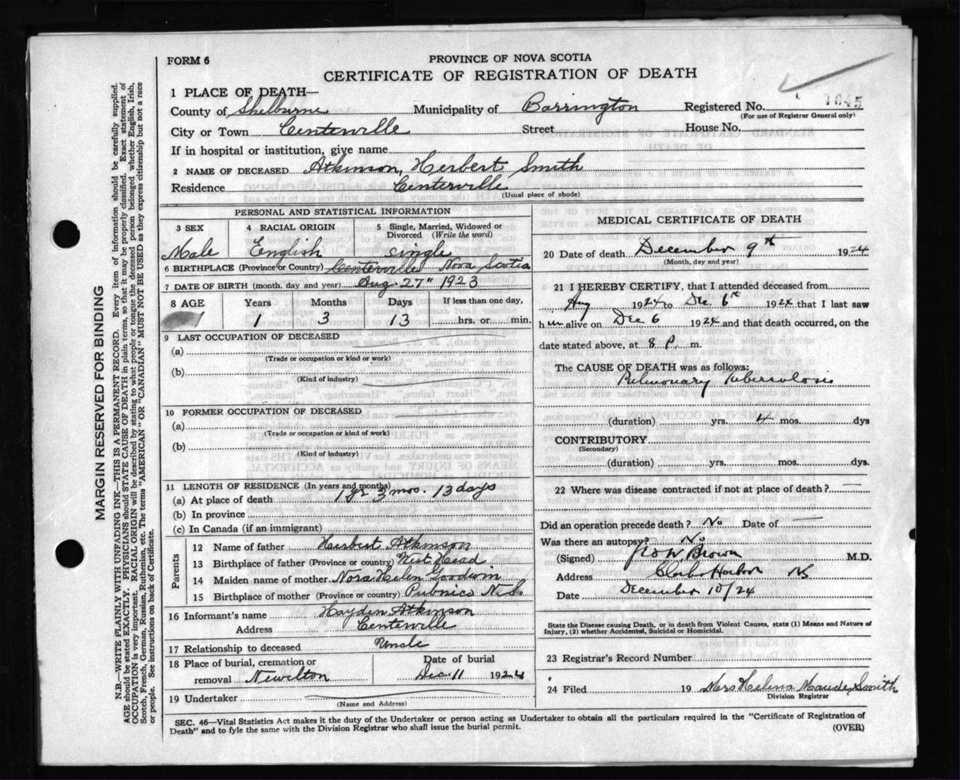 FORM 6
PROVINCE OF NOVA SCOTIA
CERTIFICATE OF REGISTRATION OF DEATH
1 PLACE OF DEATH—
County of Shelburne Municipality of Barrington Registered No. 1045
(For use of Registrar General only)
City or Town Centerville Street House No.
If in hospital or institution, give name
2 NAME OF DECEASED Atkinson, Herbert Smith
Residence Centerville
(Usual place of abode)
PERSONAL AND STATISTICAL INFORMATION
3 SEX 4 RACIAL ORIGIN 5 Single, Married, Widowed or Divorced (Write the word)
Male English single
6 BIRTHPLACE (Province or Country) Centerville Nova Scotia
7 DATE OF BIRTH (month, day and year) Aug. 27" 1923
8 AGE Years Months Days If less than one day,
1 3 13 hrs. or min.
9 LAST OCCUPATION OF DECEASED
(a)
(Trade or occupation or kind of work)
(b)
(Kind of industry)
10 FORMER OCCUPATION OF DECEASED
(a)
(Trade or occupation or kind of work)
(b)
(Kind of industry)
11 LENGTH OF RESIDENCE (In years and months)
(a) At place of death 1 yr 3 mos. 13 days
(b) In province
(c) In Canada (if an immigrant)
Parents
12 Name of father Herbert Atkinson
13 Birthplace of father (Province or country) West Head
14 Maiden name of mother Nora Helen Goodwin
15 Birthplace of mother (Province or country) Pubnico N.S.
16 Informant's name Hayden Atkinson
Address Centerville
17 Relationship to deceased Uncle
18 Place of burial, cremation or removal Newellton
Date of burial Dec. 11 1924
19 Undertaker
(Name and Address)
MEDICAL CERTIFICATE OF DEATH
20 Date of death December 9th 1924
(Month, day and year)
21 I HEREBY CERTIFY, that I attended deceased from
Aug 1924 to Dec 6th 1924 that I last saw
him alive on Dec 6 1924 and that death occurred, on
date stated above, at 8 P. m.
The CAUSE OF DEATH was as follows:
Pulmonary Tuberculosis
(duration) yrs. 4 mos. dys
CONTRIBUTORY
(Secondary)
(duration) yrs. mos. dys.
22 Where was disease contracted if not at place of death?
Did an operation precede death? No Date of
Was there an autopsy? No
(Signed) Brown M.D.
Address Harbor NS
Date December 10/24
State the Disease causing Death, or in death from Violent Causes, state (1) Means and Nature of
Injury, (2) whether Accidental, Suicidal or Homicidal.
23 Registrar's Record Number
24 Filed 19 Mrs Helena Maude Smith
Division Registrar
SEC. 46—Vital Statistics Act makes it the duty of the Undertaker or person acting as Undertaker to obtain all the particulars required in the "Certificate of Registration of
Death" and to fyle the same with the Division Registrar who shall issue the burial permit.
(OVER)
MARGIN RESERVED FOR BINDING
N.B.—WRITE PLAINLY WITH UNFADING INK—THIS IS A PERMANENT RECORD. Every item of information should be carefully supplied.
AGE should be stated EXACTLY. PHYSICIANS should STATE CAUSE OF DEATH in plain terms, so that it may be properly classified. Exact statement of
OCCUPATION is very important. RACIAL ORIGIN will be described by stating to what people or tongue the deceased person belonged whether English, Irish,
Scotch, French, German, Russian, Ruthenian, etc. The terms "AMERICAN" OR "CANADIAN" MUST NOT BE USED as they express citizenship but not a race
or people. See instructions on back of Certificate.